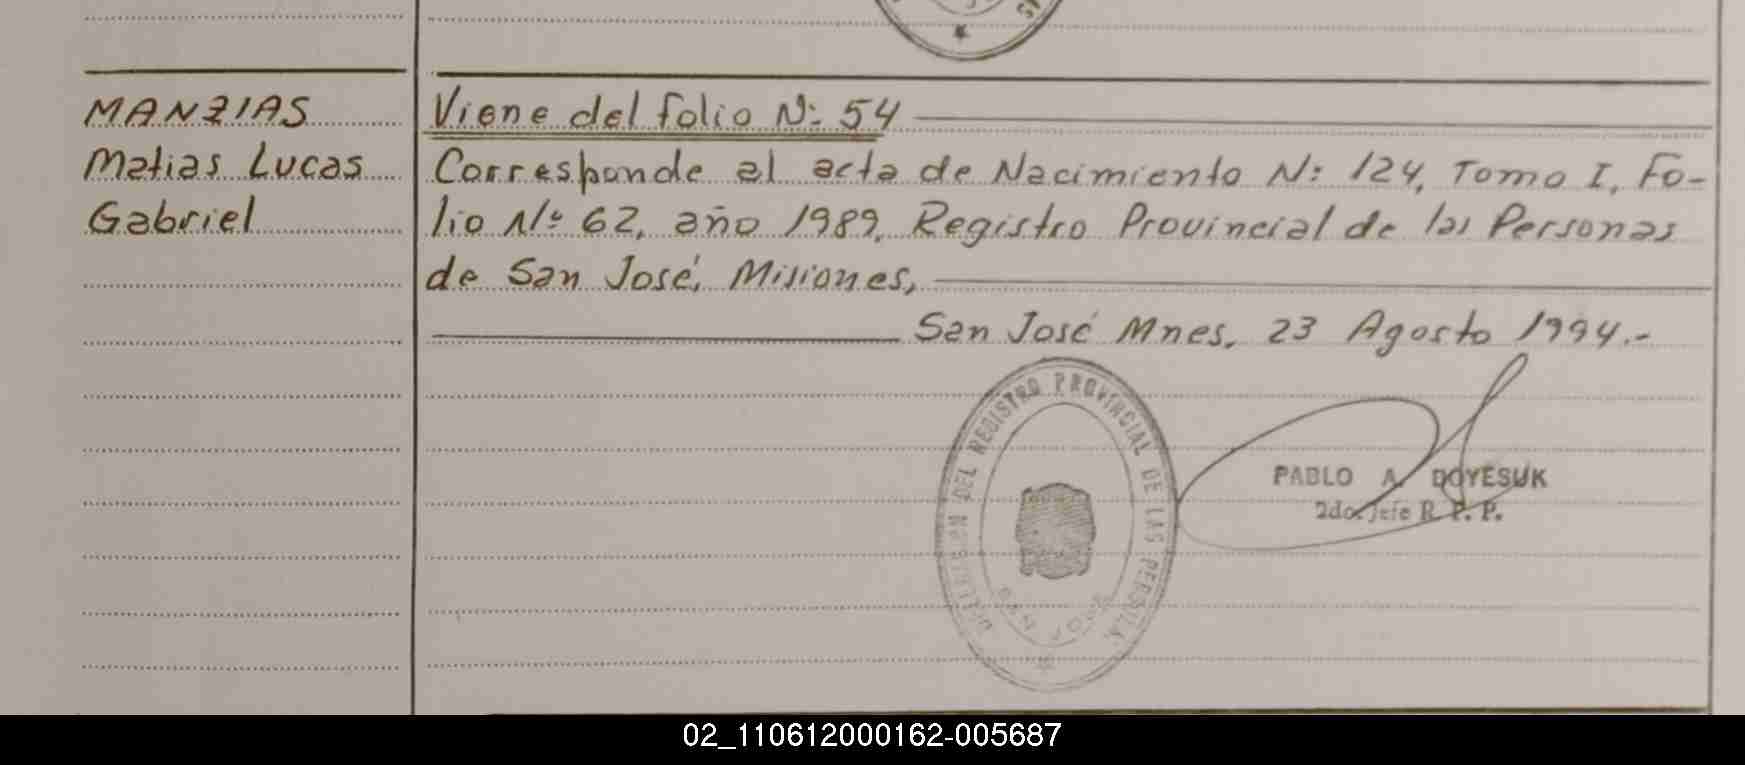 MANZIAS
Matias Lucas
Gabriel
Viene del folio N: 54
Corresponde al acta de Nacimiento N: 124, Tomo I, Fo-
lio Nº 62, año 1989, Registro Provincial de las Personas
de San José, Misiones,
San José Mnes, 23 Agosto 1994.-
DEL REGISTRO PROVINCIAL DE LAS PERSONA
SAN JOSE
PABLO A. DOYESUK
2do. Jefe R. P. P.
02_110612000162-005687